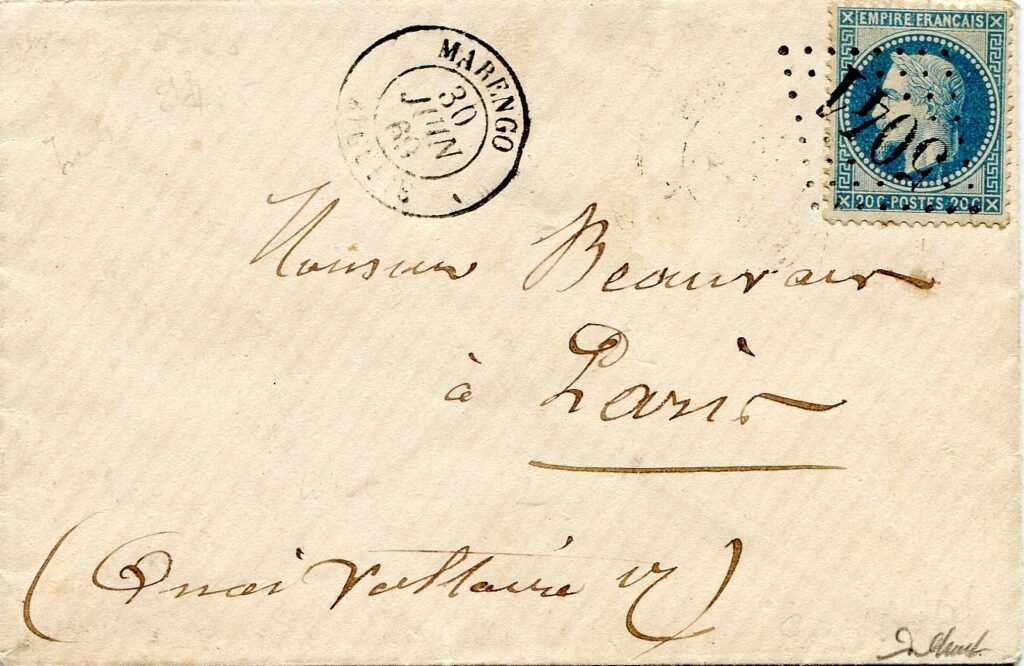 MARENGO
30
JUIN
68
ALGERIE
EMPIRE FRANÇAIS
5041
20 C · POSTES · 20 C
Monsieur Beauvais
à Paris
(Quai Voltaire 17)